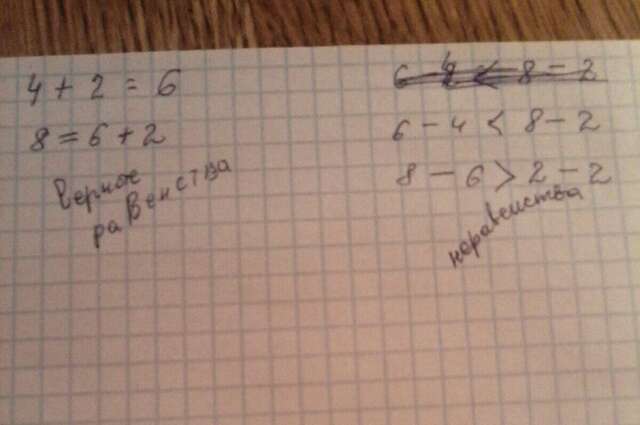 4 + 2 = 6
8 = 6 + 2
Верные
равенства
6 - 4 < 8 - 2
6 - 4 < 8 - 2
8 - 6 > 2 - 2
неравенства